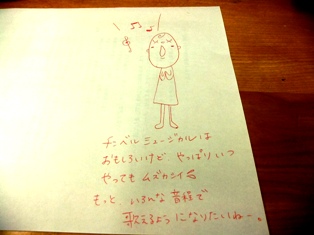 チンベルミュージカルは
おもしろいけど やっぱりいつ
やっても ムズカシイ
もっと いろんな音程で
歌えるようになりたいねー。